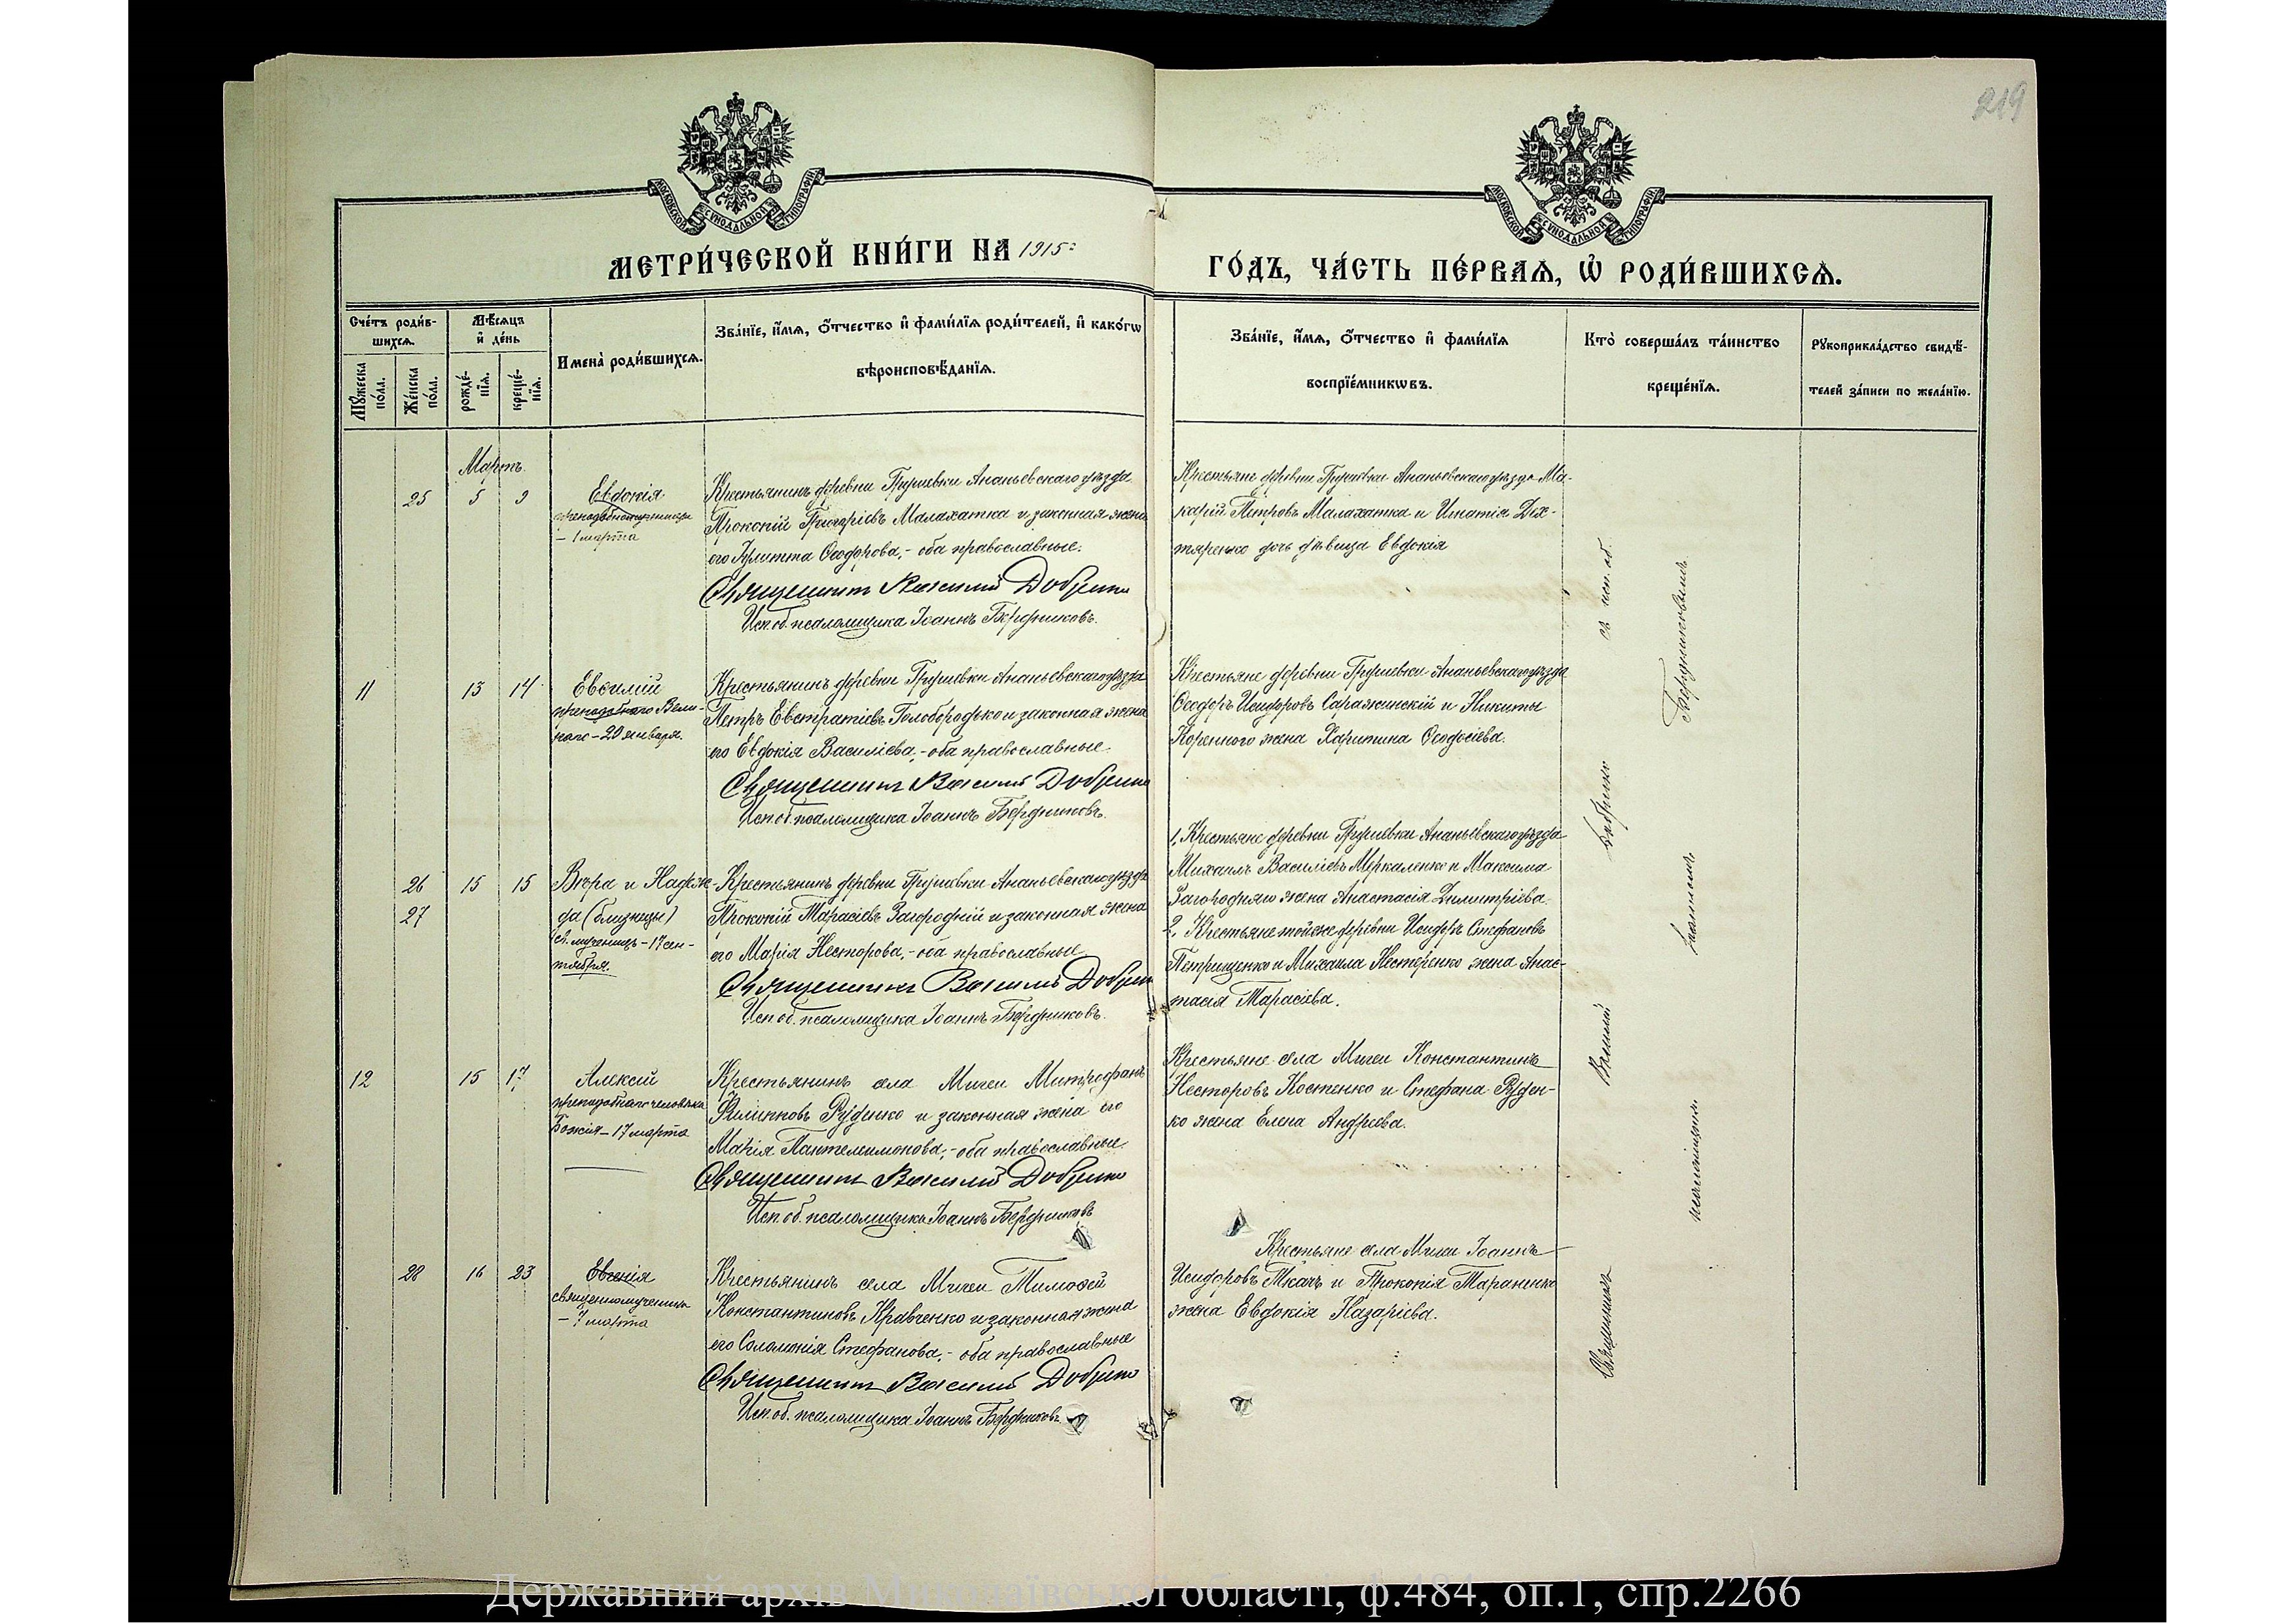 219
МОСКОВСКОЙ СУНОДАЛЬНОЙ ТИПОГРАФІИ
МОСКОВСКОЙ СУНОДАЛЬНОЙ ТИПОГРАФІИ
МЕТРИ́ЧЕСКОЙ КНИ́ГИ НА 1915
ГО́ДЪ, ЧА́СТЬ ПЕ́РВАѦ, Ѡ҆ РОДИ́ВШИХСѦ.
Сче́тъ роди́в-
шихсѧ.
Мꙋ́жеска
по́ла.
Же́нска
по́ла.
Мѣ́сѧцъ
и҆ де́нь
рожде́-
нїѧ.
креще́-
нїѧ.
Имена̀ роди́вшихсѧ.
Зва́нїе, и҆́мѧ, ѻ҆́тчество и҆ фами́лїѧ роди́телей, и҆ како́гѡ
вѣроисповѣ́данїѧ.
Зва́нїе, и҆́мѧ, ѻ҆́тчество и҆ фами́лїѧ
воспрїе́мникѡвъ.
Кто̀ соверша́лъ та́инство
креще́нїѧ.
Рꙋкоприкла́дство свидѣ́-
телей за́писи по жела́нїю.
Мартъ
25 5 9 Евдокія
преподобномученицы
– 1 марта
Крестьянинъ деревни Грушевки Ананьевскаго уѣзда
Прокопій Григоріевъ Малахатка и законная жена
его Іулитта Ѳеодорова,- оба православные.
Священникъ Василій Добренко
Исп. об. псаломщика Іоаннъ Бердниковъ.
Крестьяне деревни Грушевки Ананьевскаго уѣзда Ма-
карій Петровъ Малахатка и Игнатія Дех-
тяренко дочь дѣвица Евдокія
11 13 14 Евѳимій
преподобнаго Вели-
каго – 20 января.
Крестьянинъ деревни Грушевки Ананьевскаго уѣзда
Петръ Евстратіевъ Голобородько и законная жена
его Евдокія Василіева,- оба православные.
Священникъ Василій Добренко
Исп. об. псаломщика Іоаннъ Бердниковъ.
Крестьяне деревни Грушевки Ананьевскаго уѣзда
Ѳеодоръ Исидоровъ Саражинскій и Никиты
Коренного жена Харитина Ѳеодосіева.
26 15 15 Вѣра и Надеж-
27 да (близнецы)
св. мученицъ – 17 сен-
тября.
Крестьянинъ деревни Грушевки Ананьевскаго уѣзда
Прокопій Тарасіевъ Загородній и законная жена
его Марія Несторова,- оба православные
Священникъ Василій Добренко
Исп. об. псаломщика Іоаннъ Бердниковъ.
1, Крестьяне деревни Грушевки Ананьевскаго уѣзда
Михаилъ Василіевъ Меркаленко и Максима
Загородняго жена Анастасія Димитріева.
2. Крестьяне той же деревни Исидоръ Стефановъ
Петрищенко и Михаила Нестеренко жена Анас-
тасія Тарасіева.
12 15 17 Алексій
преподобнаго человѣка
Божія – 17 марта
Крестьянинъ села Мигеи Митрофанъ
Филипповъ Руденко и законная жена его
Марія Пантелеимонова,- оба православные.
Священникъ Василій Добренко
Исп. об. псаломщика Іоаннъ Бердниковъ
Крестьяне села Мигеи Константинъ
Несторовъ Костенко и Стефана Руден-
ко жена Елена Андреева.
28 16 23 Евгенія
священномученика
– 7 марта
Крестьянинъ села Мигеи Тимоѳей
Константиновъ Кравченко и законная жена
его Соломонія Стефанова,- оба православные
Священникъ Василій Добренко
Исп. об. псаломщика Іоаннъ Бердниковъ
Крестьяне села Мигеи Іоаннъ
Исидоровъ Ткачъ и Прокопія Тараненко
жена Евдокія Назаріева.
Священникъ Василій Добренко съ исп. об.
псаломщика Іоанномъ Бердниковымъ
Державний архів Миколаївської області, ф.484, оп.1, спр.2266